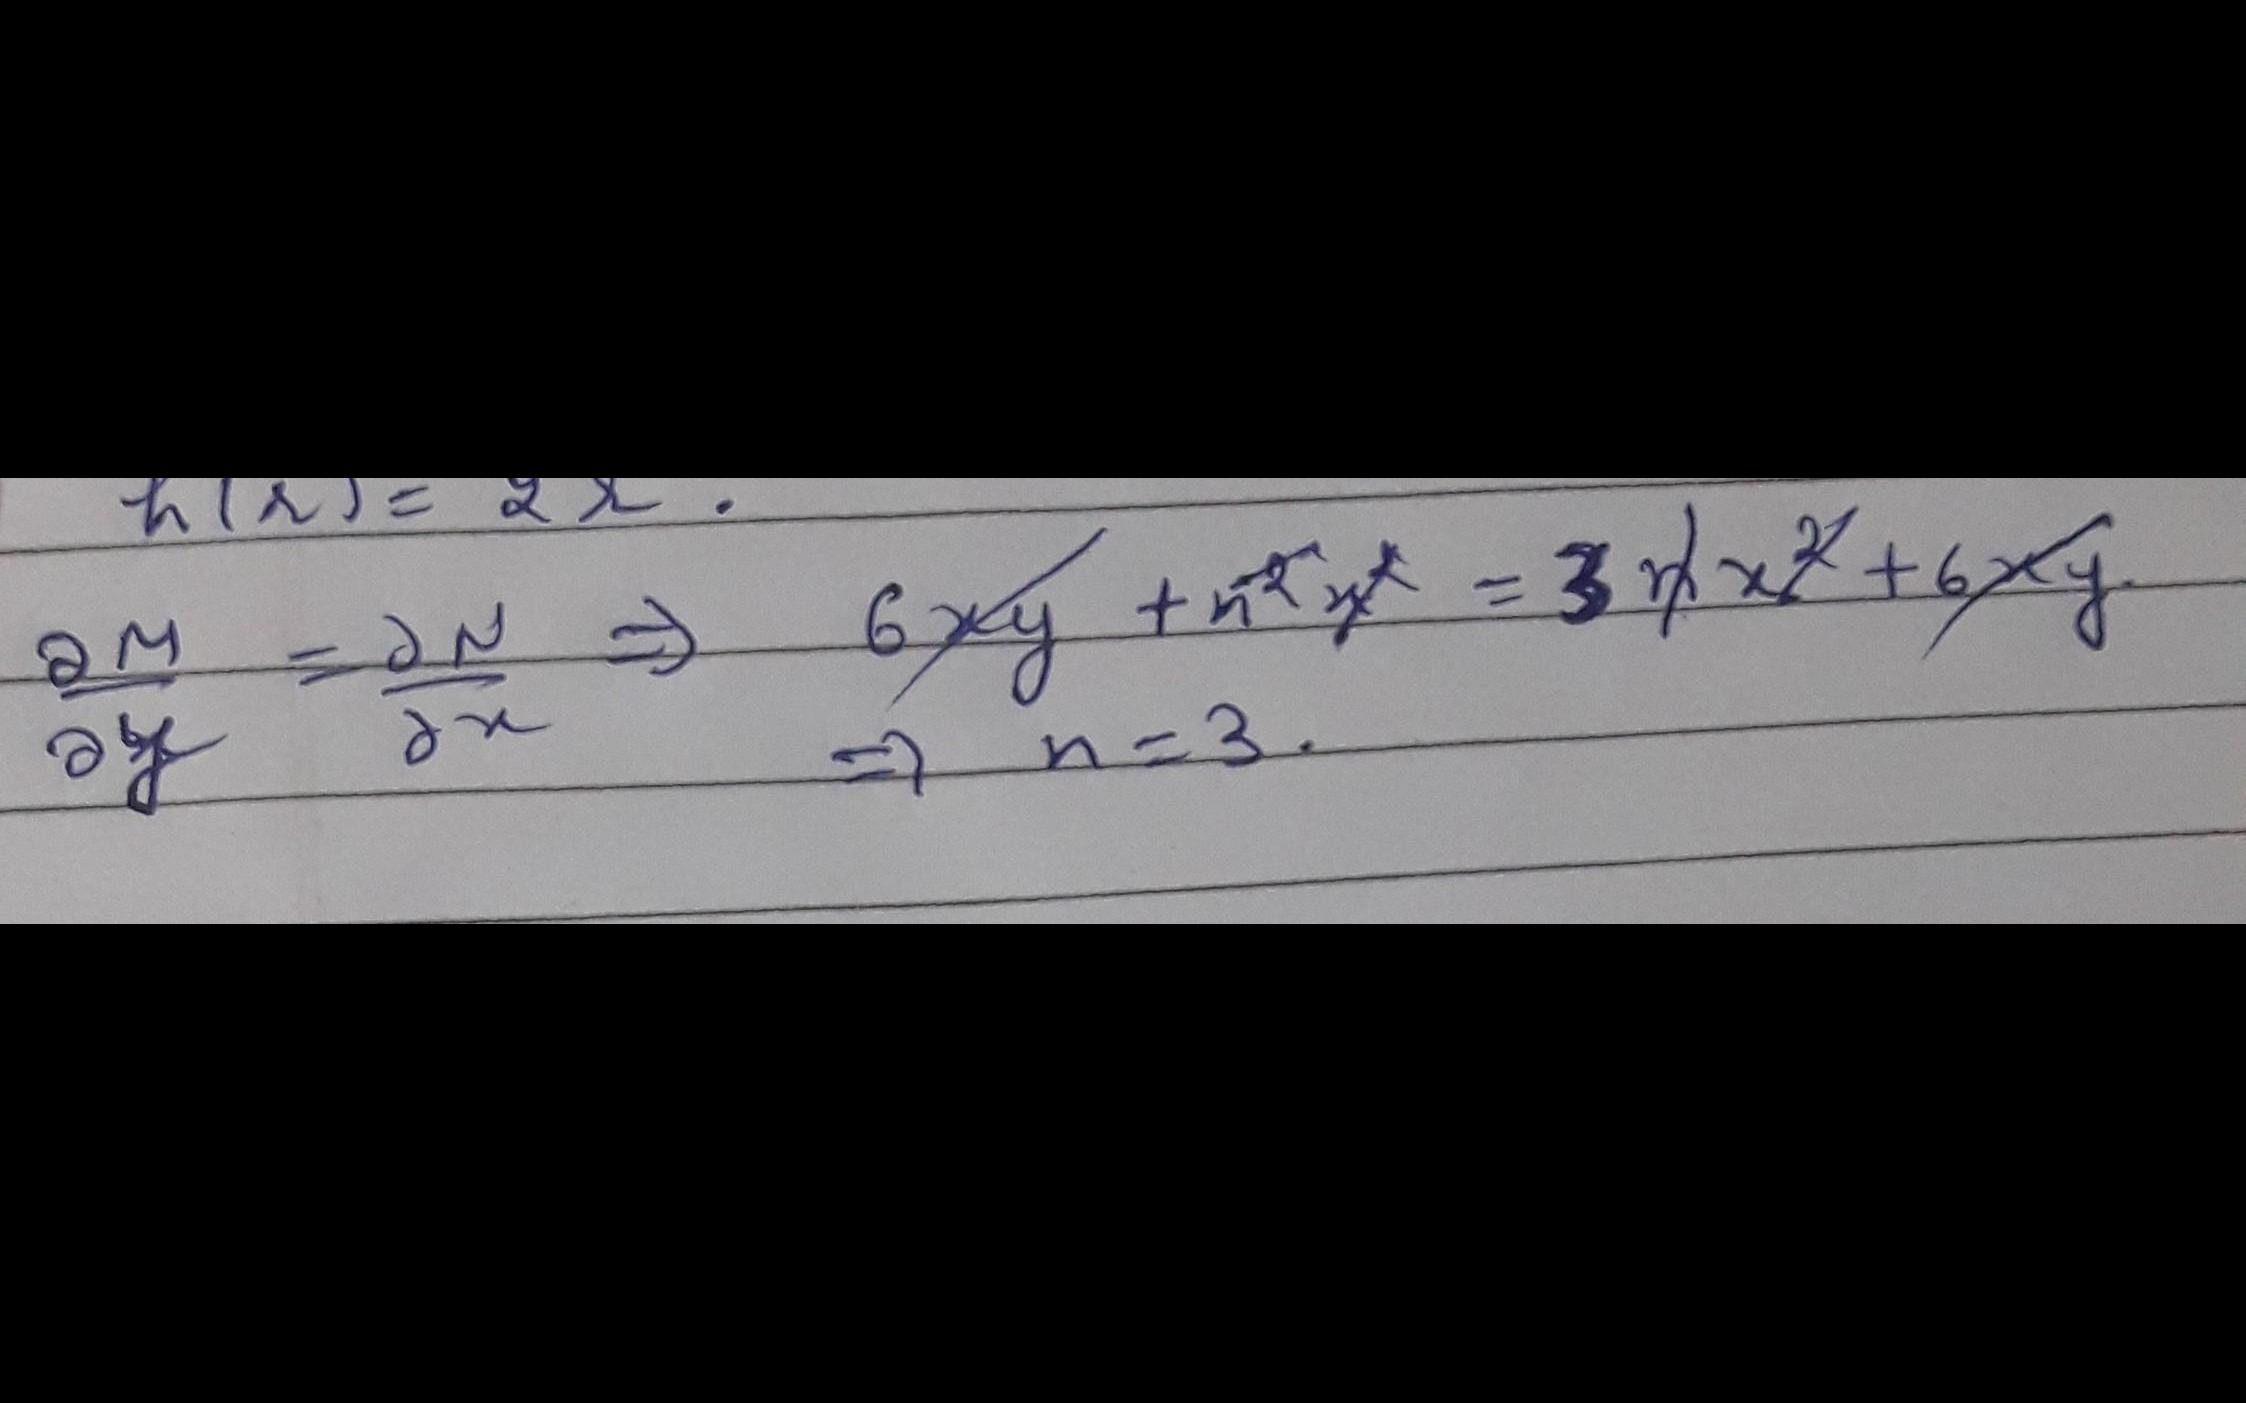 h(x) = 2x.
∂M/∂y = ∂N/∂x ⇒ 6xy + n²x² = 3nx² + 6xy.
⇒ n = 3.